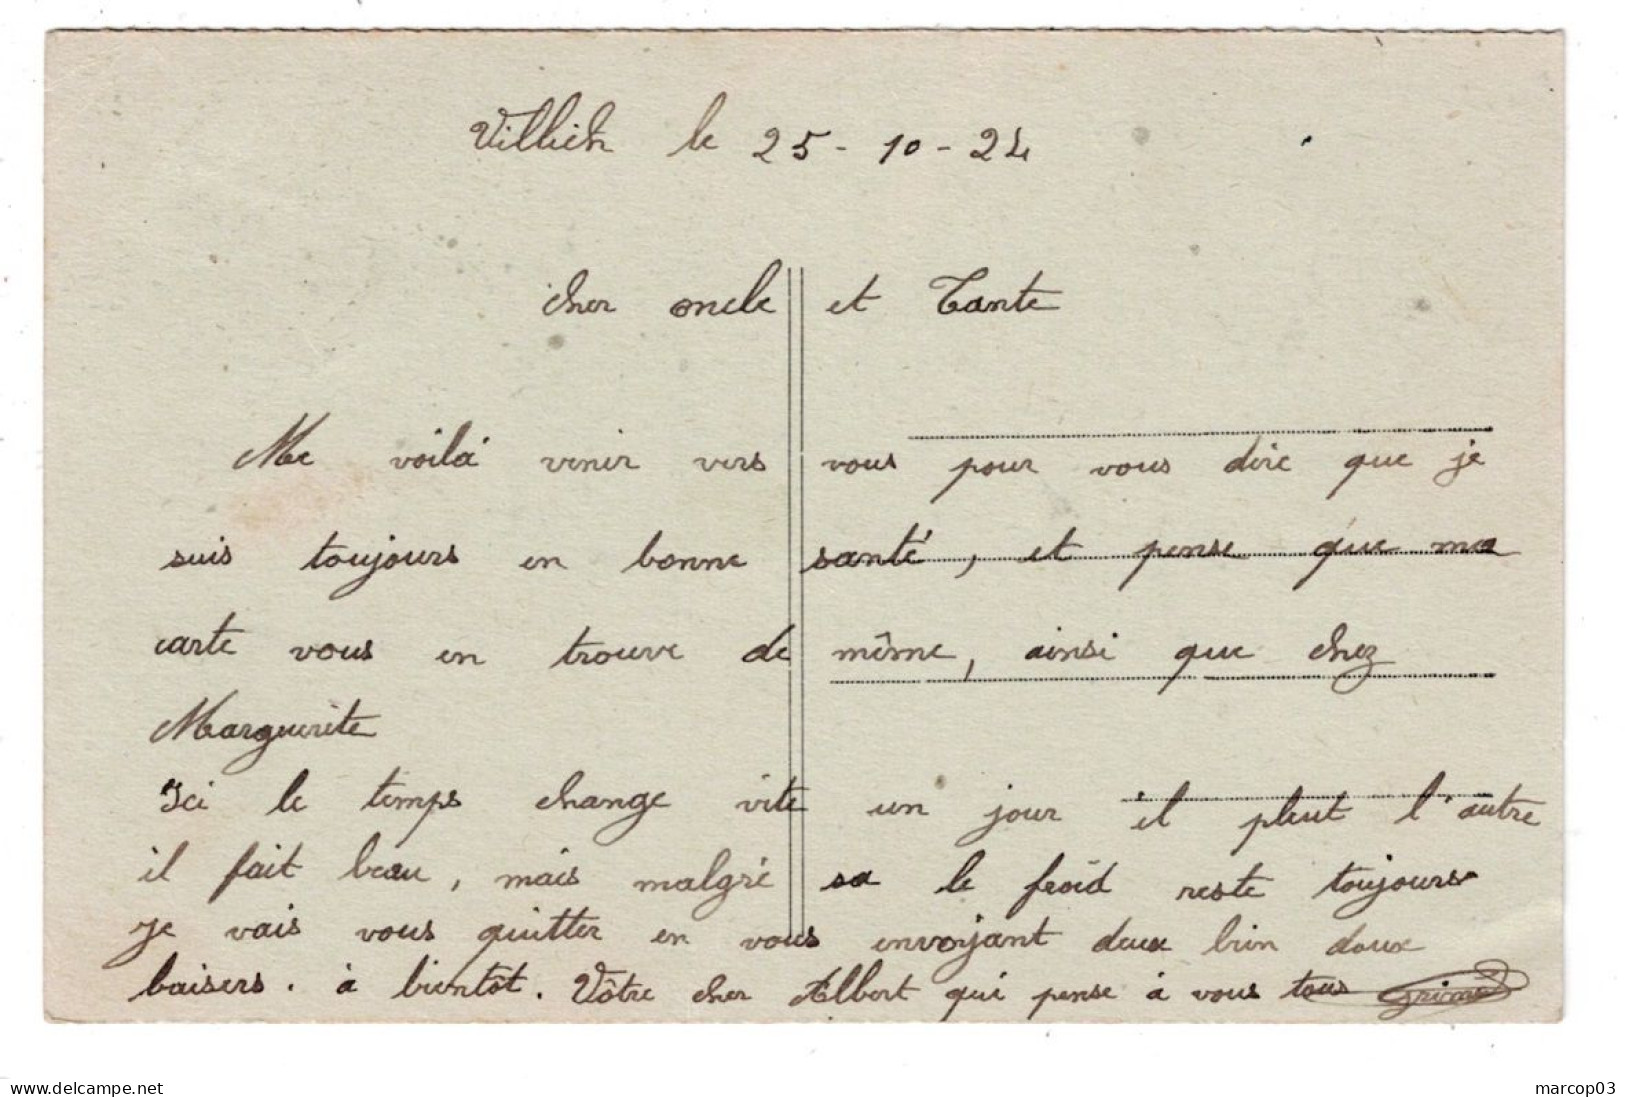 Villich le 25-10-24
Cher oncle et Tante
Me voilà venir vers vous pour vous dire que je
suis toujours en bonne santé, et pense que ma
carte vous en trouve de même, ainsi que chez
Marguerite
Ici le temps change vite un jour il pleut l'autre
il fait beau, mais malgré sa le froid reste toujours
Je vais vous quitter en vous envoyant deux bien doux
baisers. à bientôt. Vôtre cher Albert qui pense à vous tous
www.delcampe.net
marcop03